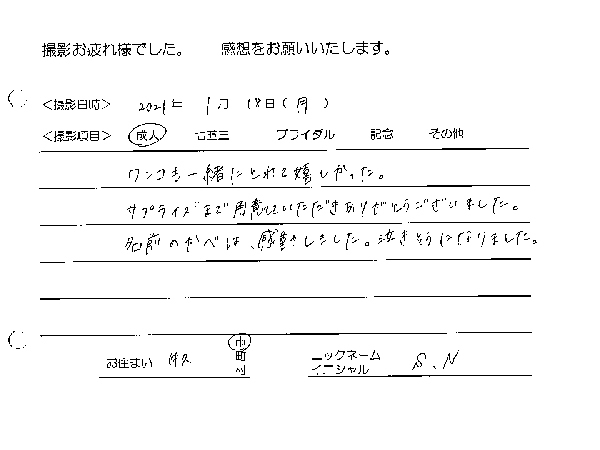 撮影お疲れ様でした。 感想をお願いいたします。
<撮影日時> 2021年 1月 18日(月)
<撮影項目> 成人 七五三 ブライダル 記念 その他
ワンコも一緒にとれて嬉しかった。
サプライズまで用意していただきありがとうございました。
名前のかべは、感動しました。泣きそうになりました。
お住まい 市
町
村
ニックネーム
イニシャル S.N